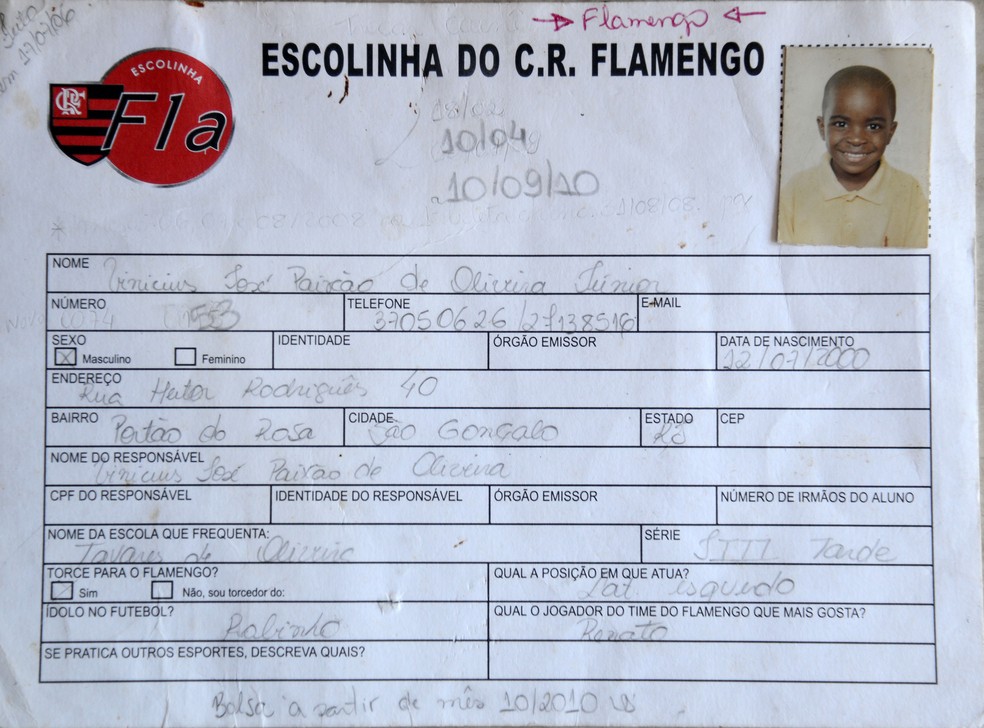 Feito
em 19/07/06
→ Flamengo ←
ESCOLINHA DO C.R. FLAMENGO
ESCOLINHA
CRF
Fla
10/04
10/09/10
NOME Vinicius José Paixão de Oliveira Júnior
NÚMERO 1553 TELEFONE 37050626/27138516 E-MAIL
SEXO IDENTIDADE ÓRGÃO EMISSOR DATA DE NASCIMENTO
X Masculino Feminino 12/07/2000
ENDEREÇO Rua Heitor Rodrigues 40
BAIRRO Portão do Rosa CIDADE São Gonçalo ESTADO RJ CEP
NOME DO RESPONSÁVEL Vinicius José Paixão de Oliveira
CPF DO RESPONSÁVEL IDENTIDADE DO RESPONSÁVEL ÓRGÃO EMISSOR NÚMERO DE IRMÃOS DO ALUNO
NOME DA ESCOLA QUE FREQUENTA: Tavares de Oliveira SÉRIE Tarde
TORCE PARA O FLAMENGO? QUAL A POSIÇÃO EM QUE ATUA?
Sim Não, sou torcedor do: Lat esquedo
ÍDOLO NO FUTEBOL? Robinho QUAL O JOGADOR DO TIME DO FLAMENGO QUE MAIS GOSTA? Renato
SE PRATICA OUTROS ESPORTES, DESCREVA QUAIS?
Bolsa a partir de mês 10/2010